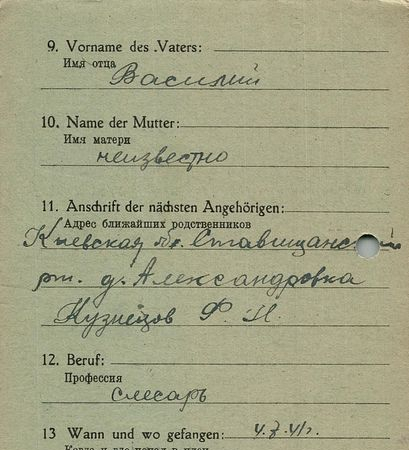 9. Vorname des Vaters:
Имя отца
Василий
10. Name der Mutter:
Имя матери
неизвестно
11. Anschrift der nächsten Angehörigen:
Адрес ближайших родственников
Киевская
д. Александровка
Кузнецов Ф. И.
12. Beruf:
Профессия
слесарь
13 Wann und wo gefangen: